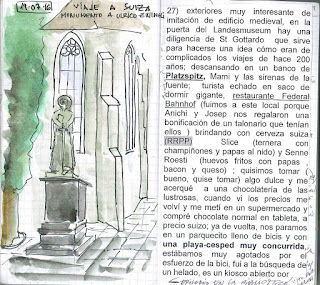 19-07-16
VIAJE A SUIZA
MONUMENTO A ULRICO ZWINGLI
27) exteriores muy interesante de
imitación de edificio medieval, en la
puerta del Landesmuseum hay una
diligencia de St Gottardo que sirve
para hacerse una idea cómo eran de
complicados los viajes de hace 200
años; descansando en un banco de
Platzspitz, Mami y las sirenas de la
fuente; turista echado en saco de
dormir gigante, restaurante Federal
Bahnhof (fuimos a este local porque
Anichi y Josep nos regalaron una
bonificación de un talonario que tenían
ellos ) brindando con cerveza suiza
(RRPP) Slice (ternera con
champiñones y papas al nido) y Senne
Roesti (huevos fritos con papas ,
bacon y queso) ; quisimos tomar (
bueno, quise tomar) algo dulce y me
acerqué a una chocolatería de las
lustrosas, cuando vi los precios me
volví y me metí en un supermercado y
compré chocolate normal en tableta, a
precio suizo; ya de vuelta, nos paramos
en un parquecito lleno de bicis y con
una playa-cesped muy concurrida,
estábamos muy agotados por el
esfuerzo de la bici, fui a la búsqueda de
un helado, es un kiosco abierto por